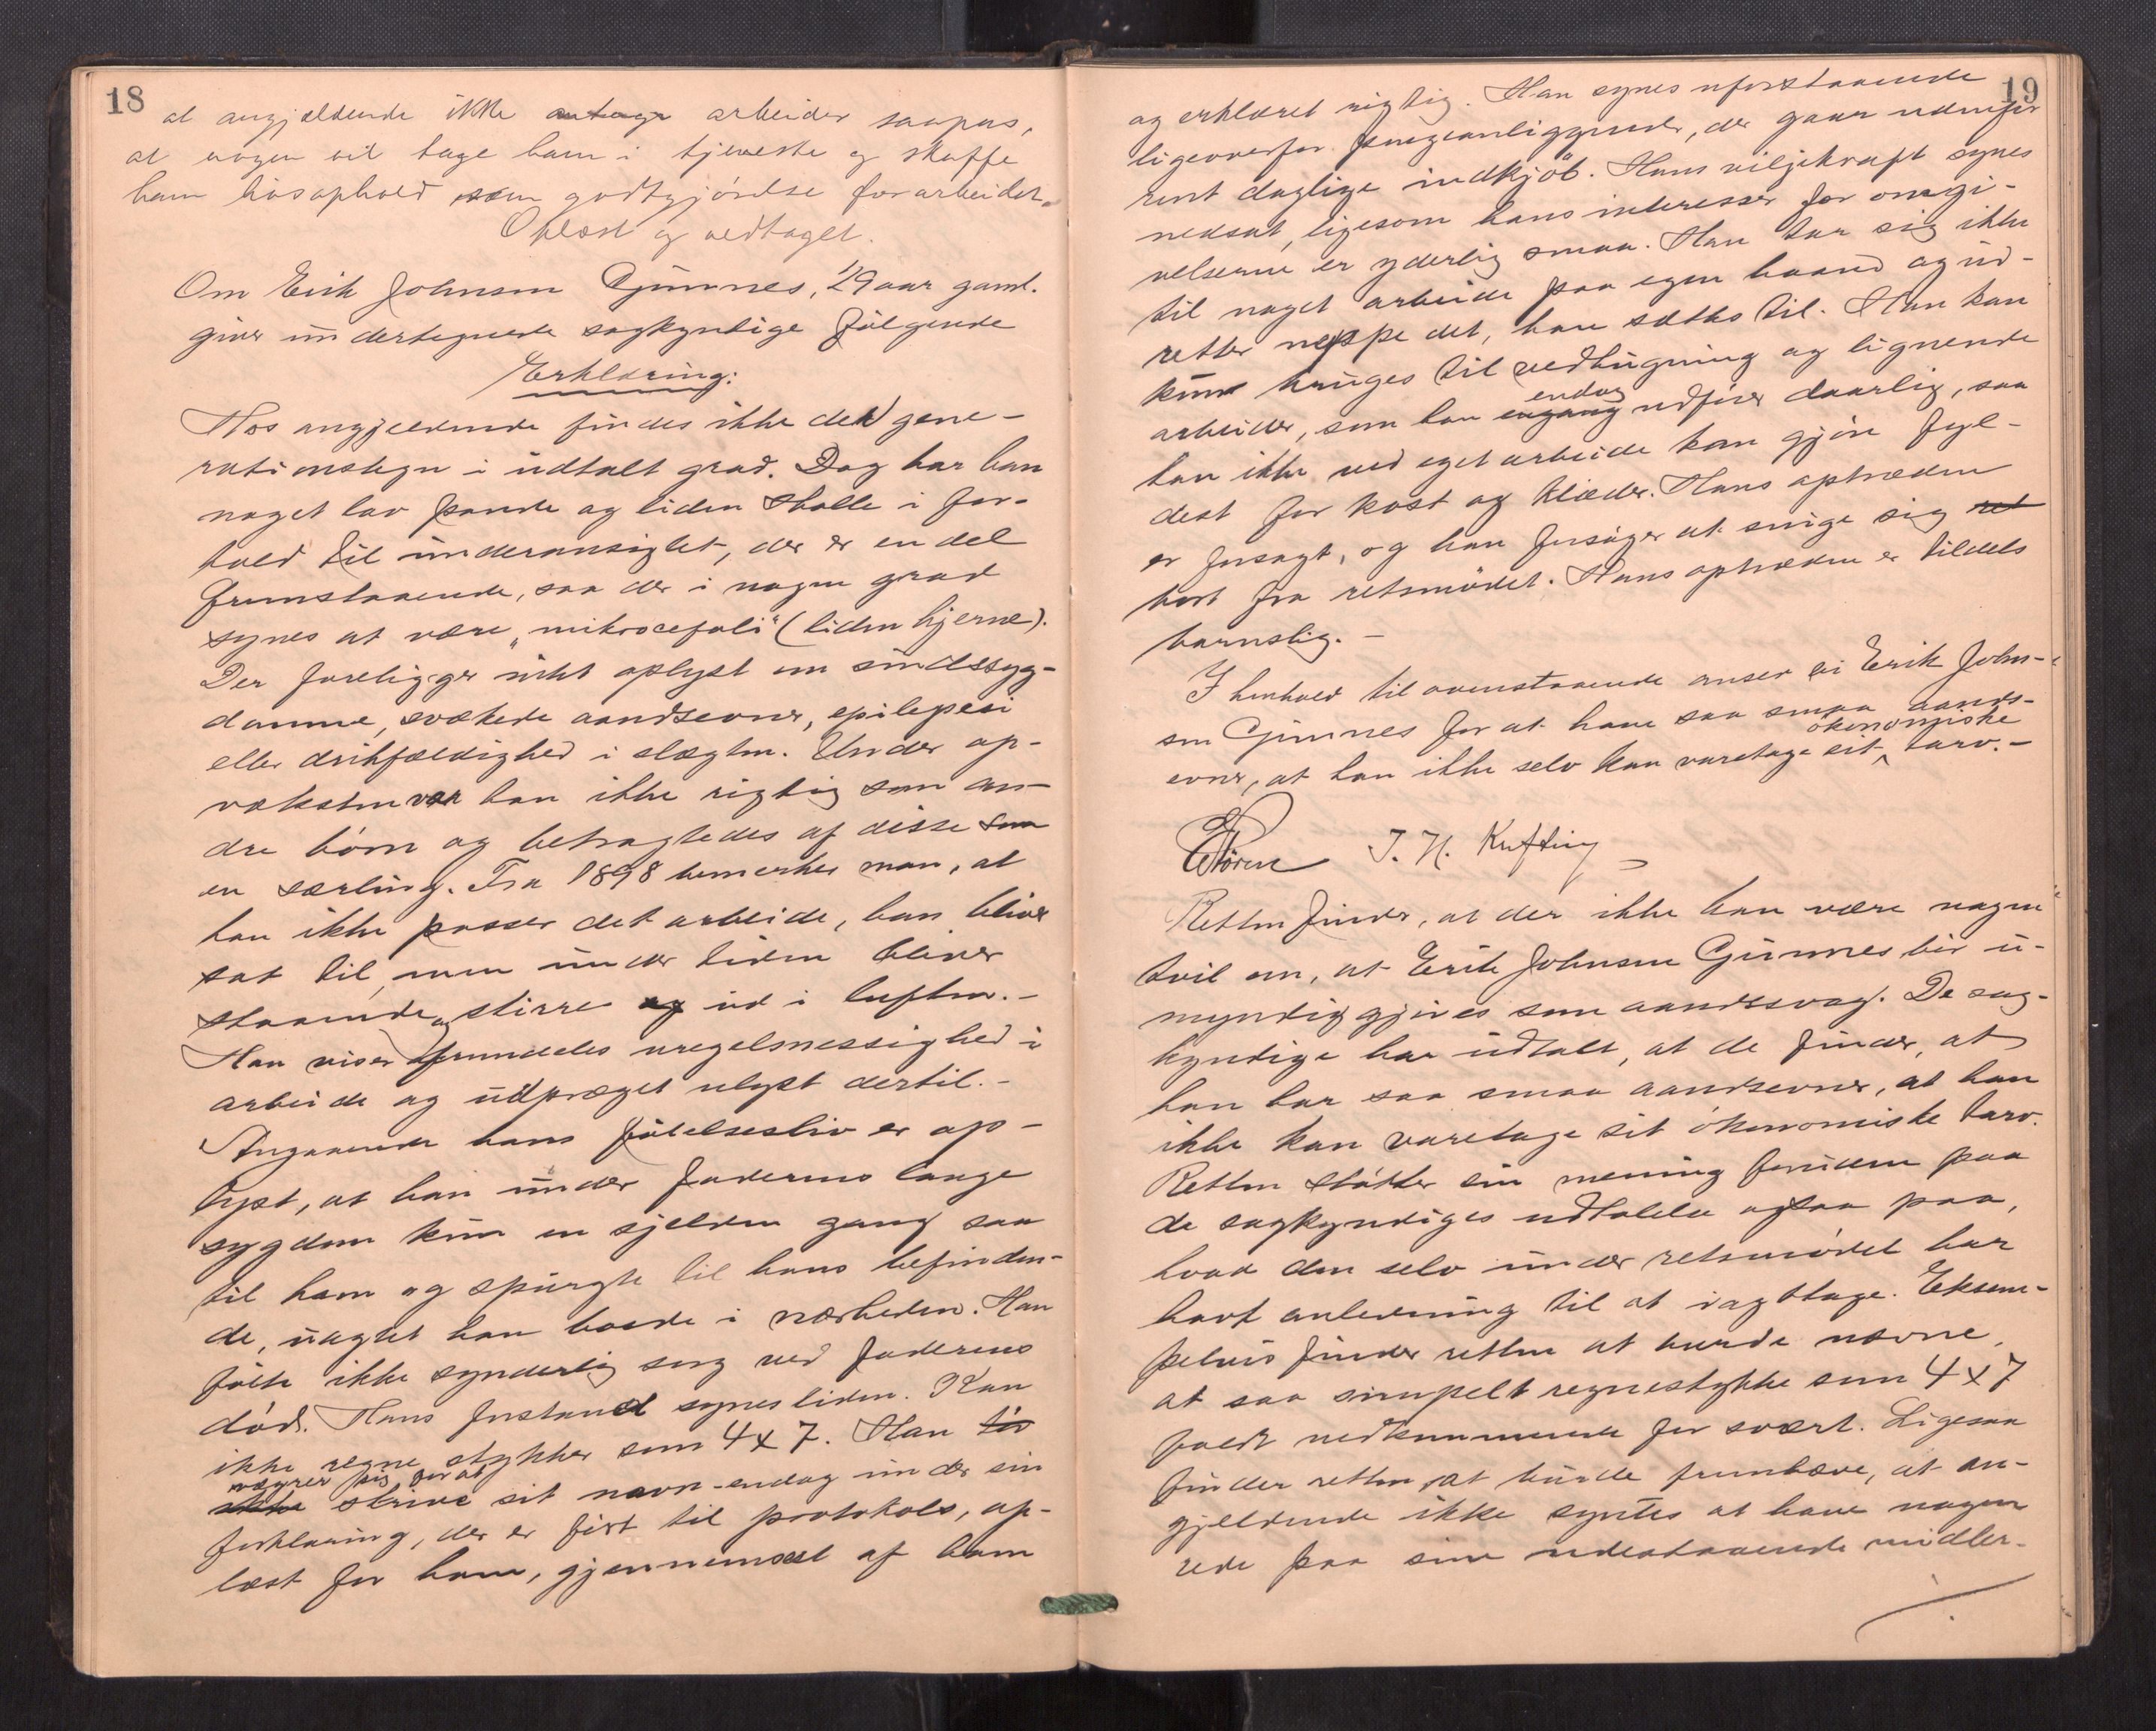 18
at angjældende ikke antage arbeider saapas,
at nogen vil tage ham i tjeneste og skaffe
ham husophold som godtgjörelse for arbeidet.
Oplæst og vedtaget.
Om Erik Johnsen Gjinnes, 29 aar gaml.
giver undertegnede sagkyndige fölgende
Erklæring:
Hos angjældende findes ikke de gene-
rationstegn i udtalt grad. Dog har han
noget lav pande og liden skalle i for-
hold til underansigtet, der er en del
fremstaaende, saa der i nogen grad
synes at være „mikrocefali" (liden hjerne).
Der foreligger intet oplyst om sindssyg-
domme, svækkede aandsevner, epilepsi
eller drikfældighed i slægten. Under op-
væksten var han ikke rigtig som an-
dre börn og betragtedes af disse som
en særling. Fra 1898 bemerkes man, at
han ikke passer det arbeide, han bliver
sat til, men under tiden bliver
staaende og stirre og ud i luften.-
Han viser fremdeles uregelmessighed i
arbeide og udpræget ulyst dertil.-
Angaaende hans fölelsesliv er op-
lyst, at han under faderens lange
sygdom kun en sjelden gang saa
til ham og spurgte til hans befinden-
de, uagtet han boede i nærheden. Han
fölte ikke synderlig sorg ved faderens
död. Hans forstand synes liden. Kan
ikke regne stykker som 4 x 7. Han tör
vægrer sig for at
ikke skrive sit navn - endog under sin
forklaring, der er fört til protokols, op-
læst for ham, gjennemlæst af ham
19
og erklæret rigtig. Han synes uforstaaende
ligeoverfor pengeanliggender, der gaar udenfor
rent daglige indkjöb. Hans viljekraft synes
nedsat, ligesom hans interesser for omgi-
velserne er yderlig smaa. Han tar sig ikke
til noget arbeide paa egen haand og ud-
retter neppe det, han sættes til. Han kan
kun bruges til vedhugning og lignende
endog
arbeider, som han engang udförer daarlig, saa
han ikke ved eget arbeide kan gjöre fyl-
dest for kost og klæder. Hans optræden
er forsagt, og han forsöger at snige sig ret
bort fra retsmödet. Hans optræden er tildels
barnslig.-
I henhold til ovenstaaende anser vi Erik John-
sen Gjinnes for at have saa smaa aands-
ökonomiske
evner, at han ikke selv kan varetage sit tarv.-
J. H. Kufting
Retten finder, at der ikke kan være nogen
tvil om, at Erik Johnsen Gjinnes bör u-
myndiggjöres som aandssvag. De sag-
kyndige har udtalt, at de finder, at
han har saa smaa aandsevner, at han
ikke kan varetage sit ökonomiske tarv.
Retten stötter sin mening foruden paa
de sagkyndiges udtalelse ogsaa paa,
hvad den selv under retsmödet har
havt anledning til at iagttage. Eksem-
pelvis finder retten at burde nævne,
at saa simpelt regnestykke som 4 x 7
faldt vedkommende for svært. Ligesaa
finder retten at burde fremhæve, at an-
gjeldende ikke syntes at have nogen
rede paa sine udestaaende midler.